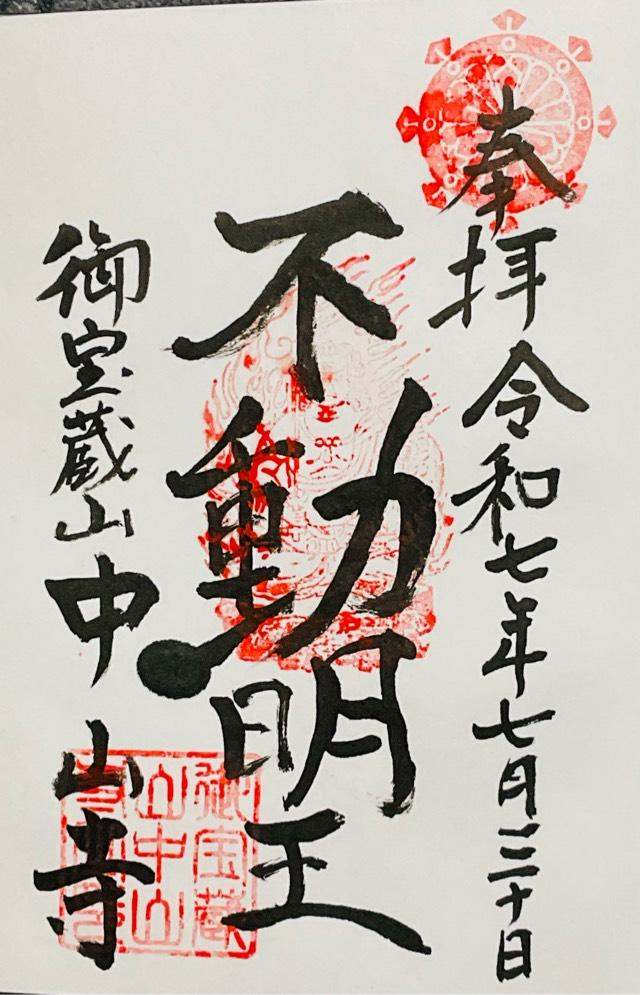 奉拝 令和七年七月三十日
不動明王
御宝蔵山中山寺
御宝蔵
山中山